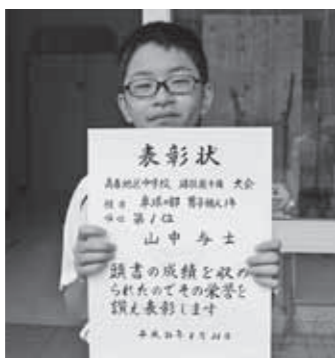 表彰状
地区中学校 大会
種目 卓球の部 男子個人1年
第1位
山中 与士
頭書の成績を収め
られたのでその栄誉を
讃え表彰します
平成 年 月 日